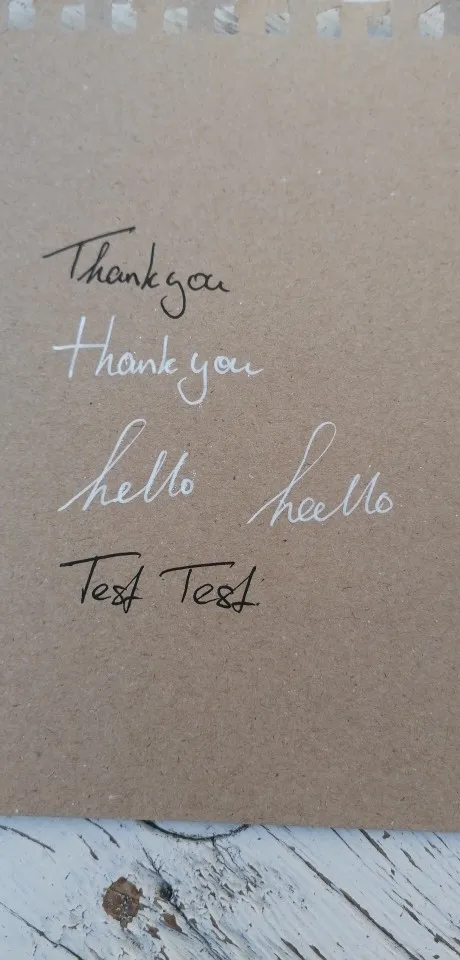 Thank you
thank you
hello heello
Test Test